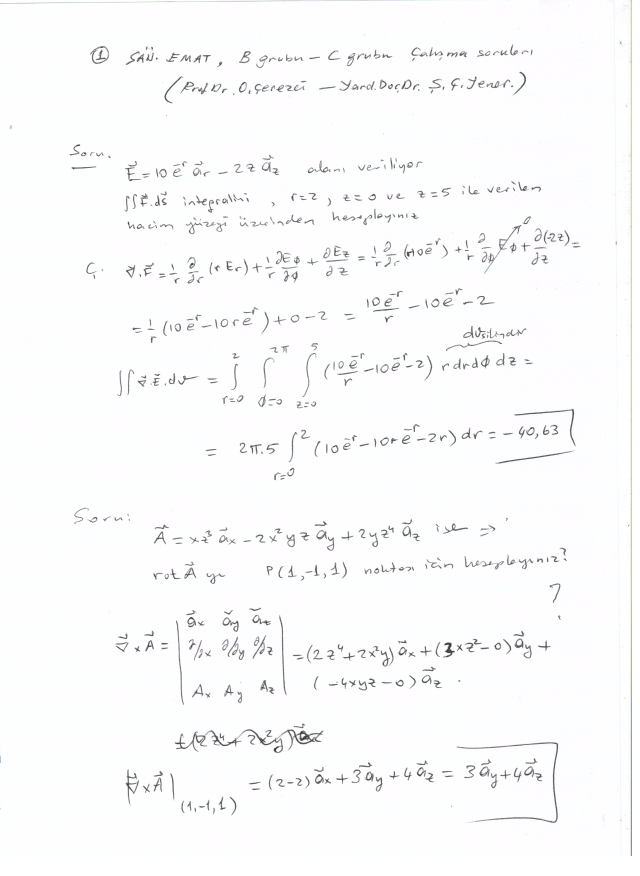 ① SAÜ. EMAT, B grubu – C grubu Çalışma soruları
(Prof Dr. O. Çerezci – Yard. Doç. Dr. Ş. Ç. Yener.)
Soru.
E⃗ = 10 e⁻ʳ a⃗r − 2z a⃗z alanı veriliyor
∫∫E⃗.ds⃗ integralini, r=2, z=0 ve z=5 ile verilen
hacim yüzeyi üzerinden hesaplayınız
Ç. ∇⃗.E⃗ = 1/r ∂/∂r (r Er) + 1/r ∂Eϕ/∂ϕ + ∂Ez/∂z = 1/r ∂/∂r (r10e⁻ʳ) + 1/r ∂/∂ϕ Eϕ↗0 + ∂(-2z)/∂z =
= 1/r (10e⁻ʳ − 10re⁻ʳ) + 0 − 2 = 10e⁻ʳ/r − 10e⁻ʳ − 2
dv silindir
∫∫∇⃗.E⃗.dv = ∫_{r=0}^{2} ∫_{ϕ=0}^{2π} ∫_{z=0}^{5} (10e⁻ʳ/r − 10e⁻ʳ − 2) r dr dϕ dz =
= 2π.5 ∫_{r=0}^{2} (10e⁻ʳ − 10re⁻ʳ − 2r) dr = − 40,63
Soru:
A⃗ = xz³ a⃗x − 2x²yz a⃗y + 2yz⁴ a⃗z ise ⇒
rot A⃗ yı P(1,-1,1) noktası için hesaplayınız?
?
∇⃗ x A⃗ = | a⃗x a⃗y a⃗z | ∂/∂x ∂/∂y ∂/∂z | Ax Ay Az | = (2z⁴ + 2x²y) a⃗x + (3xz² − 0) a⃗y +
(−4xyz − 0) a⃗z .
∇⃗ x A⃗ |(1,-1,1) = (2−2) a⃗x + 3a⃗y + 4a⃗z = 3a⃗y + 4a⃗z